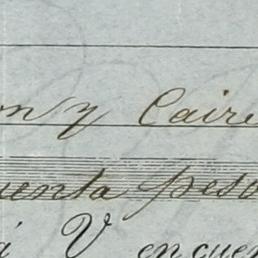 on y Caire
uenta peso
á V en cuen